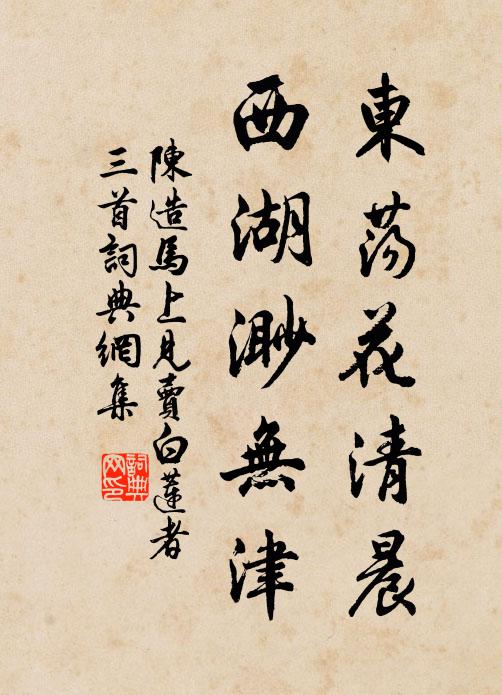 東蕩花清晨
西湖渺無津
陳造馬上見賣白蓮者
三首詞典網集
詞典
网印